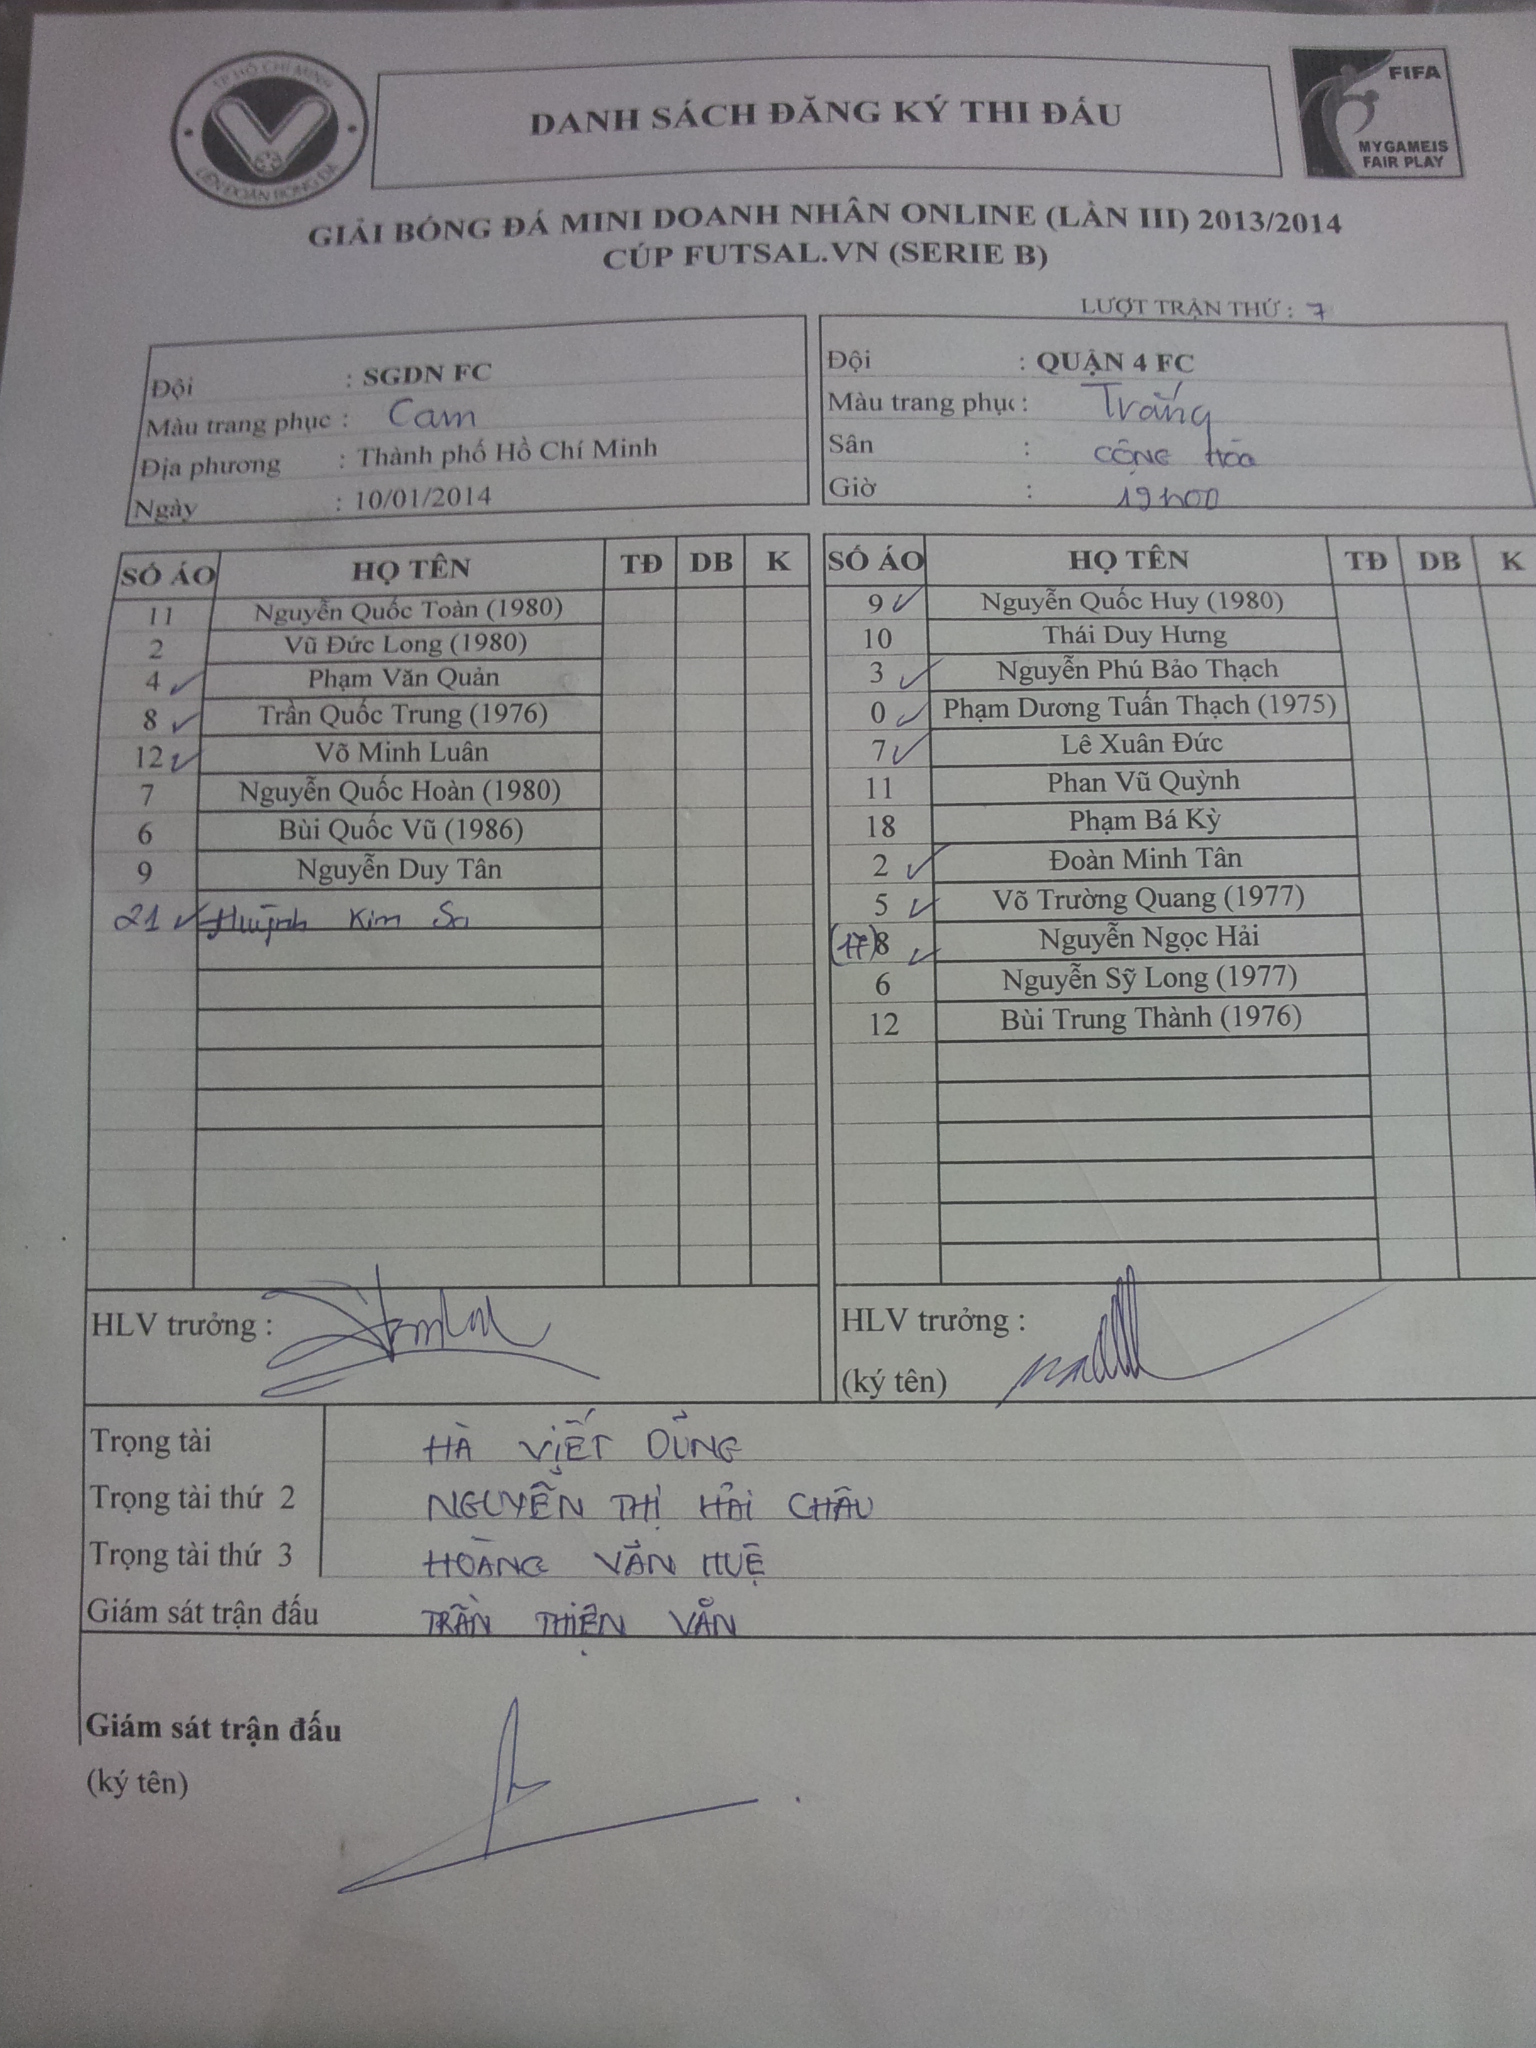 TP HỒ CHÍ MINH
LIÊN ĐOÀN BÓNG ĐÁ
DANH SÁCH ĐĂNG KÝ THI ĐẤU
FIFA
MY GAME IS
FAIR PLAY
GIẢI BÓNG ĐÁ MINI DOANH NHÂN ONLINE (LẦN III) 2013/2014
CÚP FUTSAL.VN (SERIE B)
LƯỢT TRẬN THỨ : 7
Đội : SGDN FC
Màu trang phục : Cam
Địa phương : Thành phố Hồ Chí Minh
Ngày : 10/01/2014
Đội : QUẬN 4 FC
Màu trang phục : Trắng
Sân : CỘNG HÒA
Giờ : 19h00
SỐ ÁO HỌ TÊN TĐ DB K
11 Nguyễn Quốc Toàn (1980)
2 Vũ Đức Long (1980)
4 ✓ Phạm Văn Quản
8 ✓ Trần Quốc Trung (1976)
12 ✓ Võ Minh Luân
7 Nguyễn Quốc Hoàn (1980)
6 Bùi Quốc Vũ (1986)
9 Nguyễn Duy Tân
21 ✓ Huỳnh Kim Sa
SỐ ÁO HỌ TÊN TĐ DB K
9 ✓ Nguyễn Quốc Huy (1980)
10 Thái Duy Hưng
3 ✓ Nguyễn Phú Bảo Thạch
0 ✓ Phạm Dương Tuấn Thạch (1975)
7 ✓ Lê Xuân Đức
11 Phan Vũ Quỳnh
18 Phạm Bá Kỳ
2 ✓ Đoàn Minh Tân
5 ✓ Võ Trường Quang (1977)
(17) 8 ✓ Nguyễn Ngọc Hải
6 Nguyễn Sỹ Long (1977)
12 Bùi Trung Thành (1976)
HLV trưởng :
HLV trưởng :
(ký tên)
Trọng tài HÀ VIẾT DŨNG
Trọng tài thứ 2 NGUYỄN THỊ HẢI CHÂU
Trọng tài thứ 3 HOÀNG VĂN HUỆ
Giám sát trận đấu TRẦN THIỆN VĂN
Giám sát trận đấu
(ký tên)